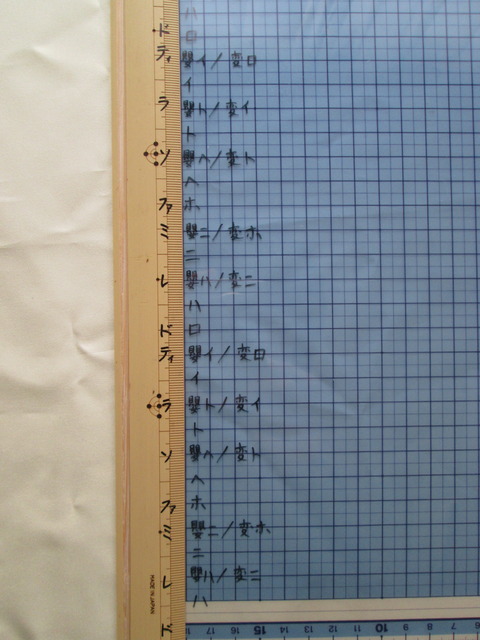 ハ
ド ロ
ティ 嬰イ/変ロ
イ
ラ 嬰ト/変イ
ト
ソ 嬰ヘ/変ト
ヘ
ファ ホ
ミ 嬰ニ/変ホ
ニ
レ 嬰ハ/変ニ
ハ
ド ロ
ティ 嬰イ/変ロ
イ
ラ 嬰ト/変イ
ト
ソ 嬰ヘ/変ト
ヘ
ファ ホ
ミ 嬰ニ/変ホ
ニ
レ 嬰ハ/変ニ
ハ
MADE IN JAPAN
ド
17 16 15 14 13 12 11 10 9 8 7 6